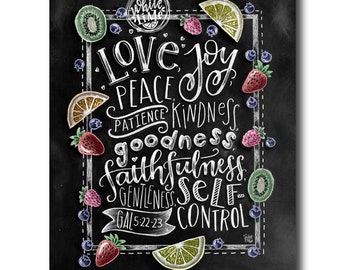 White Lime
LOVE, Joy,
PEACE,
PATIENCE, KINDNESS,
goodness,
faithfulness,
GENTLENESS, SELF-
CONTROL
GAL 5:22-23